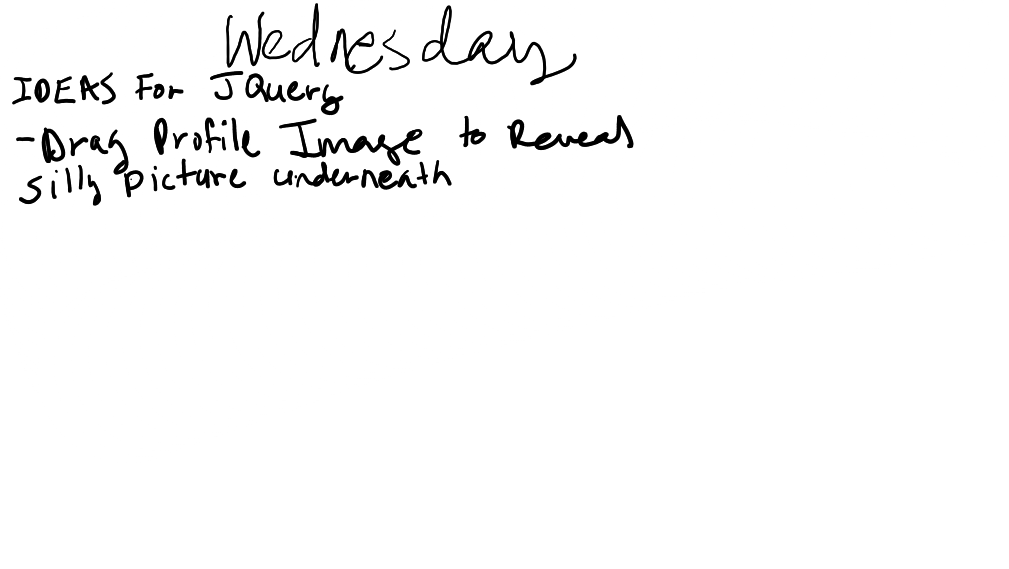 Wednesday
IDEAS For JQuery
-Drag Profile Image to Reveal
silly picture underneath